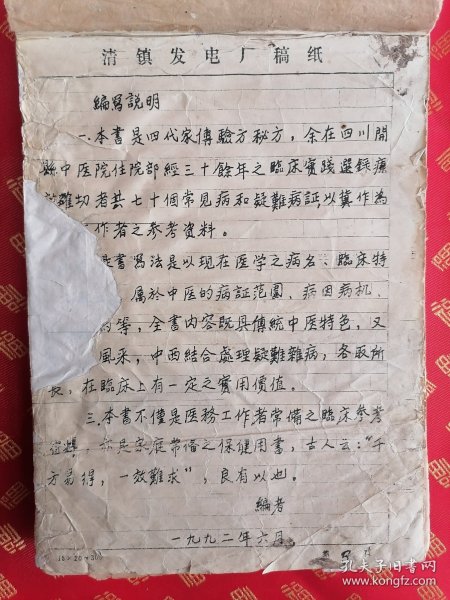 清镇发电厂稿纸
编写説明
一.本書是四代家傳驗方秘方，余在四川開
縣中医院住院部經三十餘年之臨床實踐選録療
效確切者共七十個常見病和疑難病証，以冀作為
作者之参考資料。
書寫法是以現在医学之病名、臨床特
属於中医的病証范圍，病因病机、
等，全書内容既具傳統中医特色，又
風采，中西結合處理疑難雜病，各取所
長，在臨床上有一定之實用價值。
三.本書不僅是医務工作者常備之臨床参考
亦是家庭常備之保健用書，古人云："千
方易得，一效難求"，良有以也。
編者
一九九二年六月
15×20=300
孔夫子旧书网
book.kongfz.com